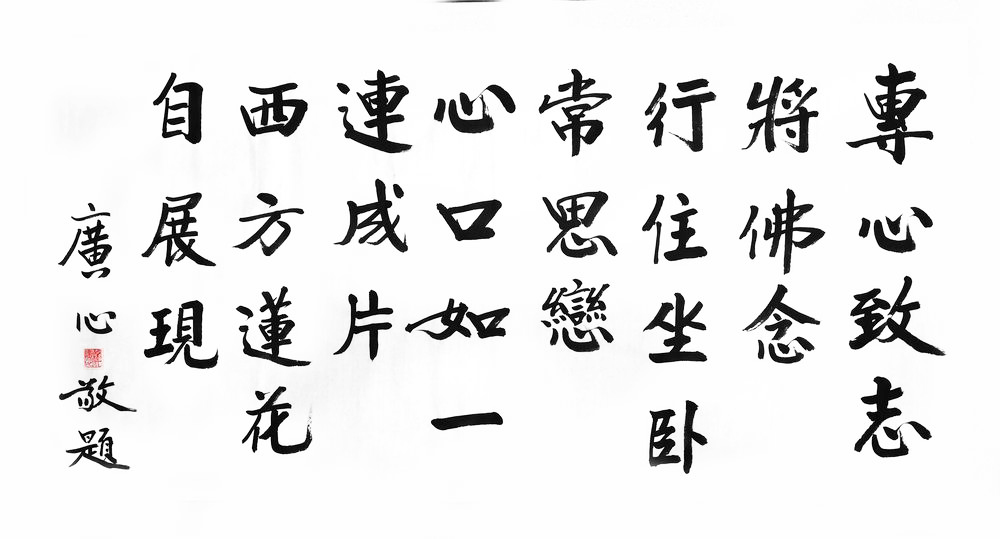 專心致志
將佛念
行住坐卧
常思戀
心口如一
連成片
西方蓮花
自展現
廣心敬題